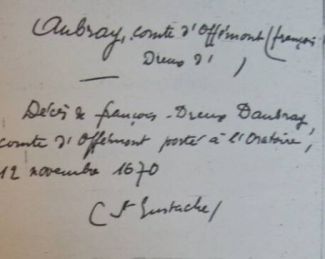 Aubray, comte d'Offémont (françois
Dreux d' )
Décès de françois-Dreux Daubray,
comte d'Offémont porté à l'Oratoire,
12 novembre 1670
(St Eustache)